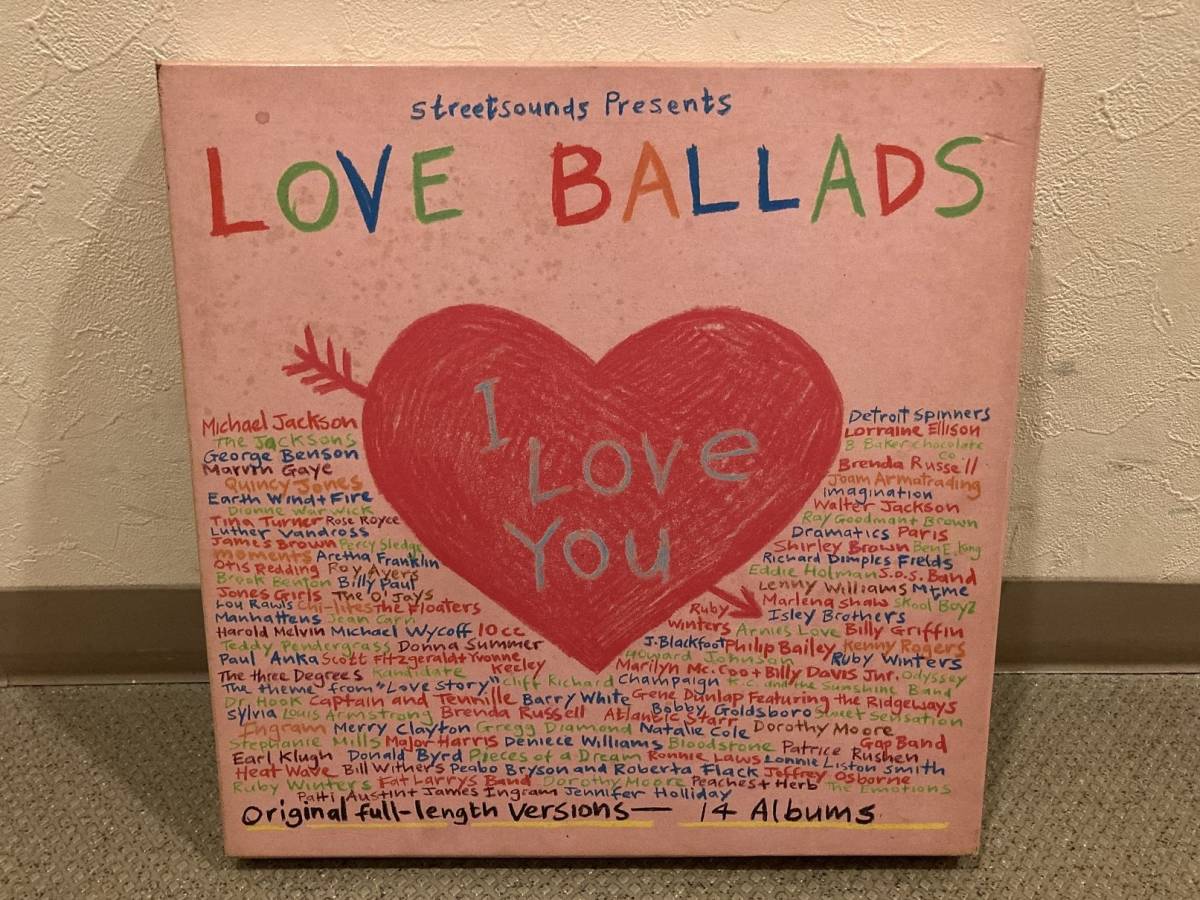 streetsounds Presents
LOVE BALLADS
I
LOVE
YOU
Michael Jackson
The Jacksons
George Benson
Marvin Gaye
Quincy Jones
Earth Wind + Fire
Dionne Warwick
Tina Turner Rose Royce
Luther Vandross
James Brown Percy Sledge
moments Aretha Franklin
Otis Redding Roy Ayers
Brook Benton Billy Paul
Jones Girls The O'Jays
Lou Rawls Chi-lites The Floaters
Manhattens Jean Carn
Harold Melvin Michael Wycoff 10cc
Teddy Pendergrass Donna Summer
Paul Anka Scott Fitzgerald + Yvonne
Keeley
The three Degrees Kandidate
Detroit Spinners
Lorraine Ellison
B Baker Chocolate
Co
Brenda Russell
Joam Armatrading
imagination
Walter Jackson
Ray Goodman + Brown
Dramatics Paris
Shirley Brown Ben E. King
Richard Dimples Fields
Eddie Holman S.O.S. Band
Lenny Williams Mtme
Marlena Shaw Skool Boyz
Ruby
Winters
Isley Brothers
Arnies Love Billy Griffin
J. Blackfoot Philip Bailey Kenny Rogers
Howard Johnson Ruby Winters
Marilyn Mc. Coo + Billy Davis Jnr. Odyssey
The theme from "Love Story" Cliff Richard Champaign K.C. and the Sunshine Band
Dr Hook Captain and Tennille Barry White Gene Dunlap Featuring the Ridgeways
Sylvia Louis Armstrong Brenda Russell Atlantic Starr Bobby Goldsboro Sweet Sensation
Ingram Merry Clayton Gregg Diamond Natalie Cole Dorothy Moore
Stephanie Mills Major Harris Deniece Williams Bloodstone Patrice Rushen Gap Band
Earl Klugh Donald Byrd Pieces of a Dream Ronnie Laws Lonnie Liston Smith
Heat Wave Bill Withers Peabo Bryson and Roberta Flack Jeffrey Osborne
Ruby Winters Fat Larrys Band Dorothy Moore Peaches + Herb The Emotions
Patti Austin + James Ingram Jennifer Holliday
Original full-length Versions — 14 Albums